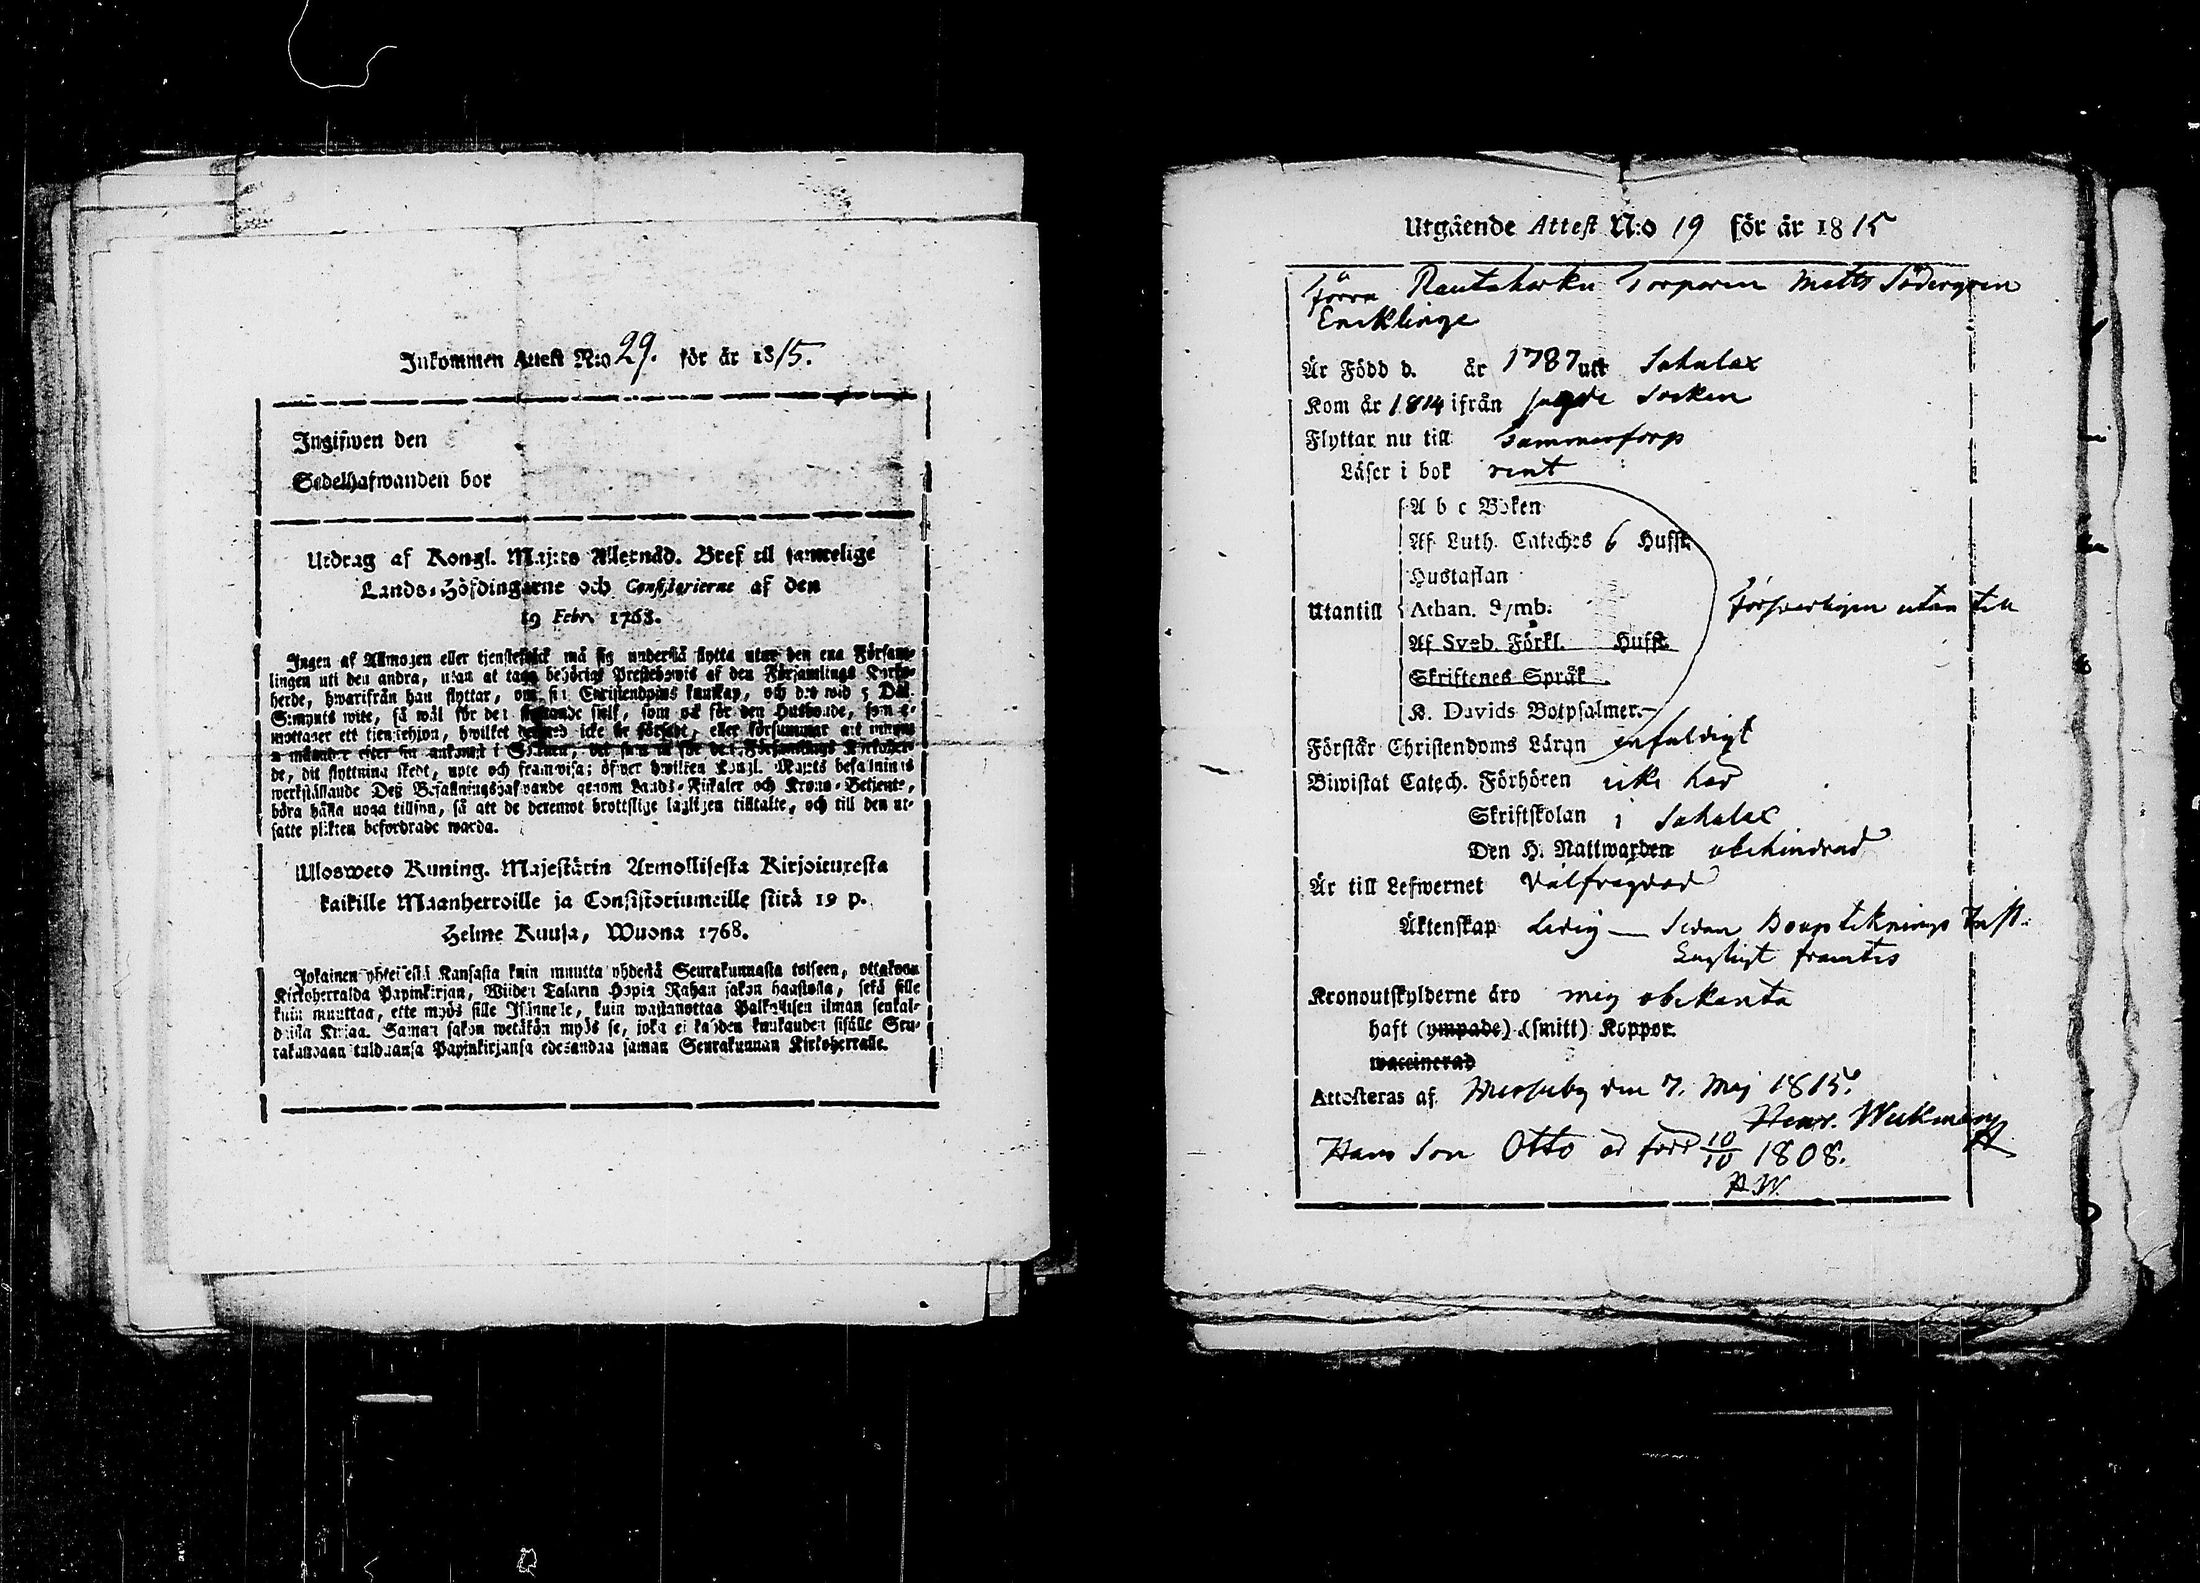 Inkommen Attest N:o 29. för år 1815.
Ingifwen den
Sedelhafwanden bor
Utdrag af Kongl. Maj:ts Allernåd. Bref til samtelige
Lands-Höfdingarne och Consistorierne af den
19 Febr. 1768.
Ingen af Allmogen eller tjenstefolck må sig understå flytta utur den ena Försam-
lingen uti den andra, utan at taga behörigt Prestebewis af den Församlings Kyrko-
herde, hwarifrån han flyttar, om sin Christendoms kunskap, och det wid 5 Dal.
S:mynts wite, så wäl för den flyttande sielf, som ock för den Husbonde, som e-
mottager ett tjenstehjon, hwilket dermed icke är försedt, eller försummar att innom
en månad efter sin ankomst i Socknen, det samma för den Församlings Kyrkoher-
de, dit flyttning skedt, upte och framwisa; öfwer hwilken Kongl. Maj:ts befallnings
werkställande Deß Befallningshafwande genom Lands-Fiskaler och Krono-Betjente,
böra hålla noga tillsyn, så att de deremot brottslige lagligen tilltalte, och till den ut-
satte plikten befordrade warda.
Ulosweto Kuning. Majestärin Armollisesta Kirjoituxesta
kaikille Maanherroille ja Consistoriumeille siitä 19 p.
Helme Kuusa, Wuona 1768.
Jokainen yhteisestä Kansasta kuin muutta yhdestä Seurakunnasta toiseen, ottakoon
Kirkoherralda Papinkirjan, Wiiden Talarin Hopia Rahan sakon haastolla, sekä sille
kuin muuttaa, ette myös sille Isännelle, kuin wastanottaa Palkollisen ilman senkal-
daista Kirjaa. Saman sakon wetäkön myös se, joka ei kahden kuukauden sisälle Seu-
rakundaan tulduansa Papinkirjansa edesandaa saman Seurakunnan Kirkoherralle.
Utgående Attest N:o 19 för år 1815
Förra Rautaharku Torparen Matts Södergren
Enklinge
Är Född d. år 1787 uti Sahalax
Kom år 1814 ifrån sagde Socken
Flyttar nu till Tammerfors
Läser i bok rent
A b c Boken
Af Luth. Cateches 6 Hufst.
Hustaflan
Utantill Athan. Symb. Försvarligen utan till
Af Sveb. Förkl. Hufst.
Skriftenes Språk
K. Davids Botpsalmer.
Förstår Christendoms Läran enfaldigt
Biwistat Catech. Förhören icke här
Skriftskolan i Sahalax
Den H. Nattwarden obehindrad
Är till Lefwernet Välfrägdad
Äktenskap Ledig — Sedan Boupteknings Inst.
Lagligt framtes
Kronoutskylderne äro mig obekanta
haft (ympade) (smitt) Koppor
waccinerad
Attesteras af Messuby den 7. Maj 1815.
Henr. Weckman
Hans Son Otto är född 10/10 1808.
H W.